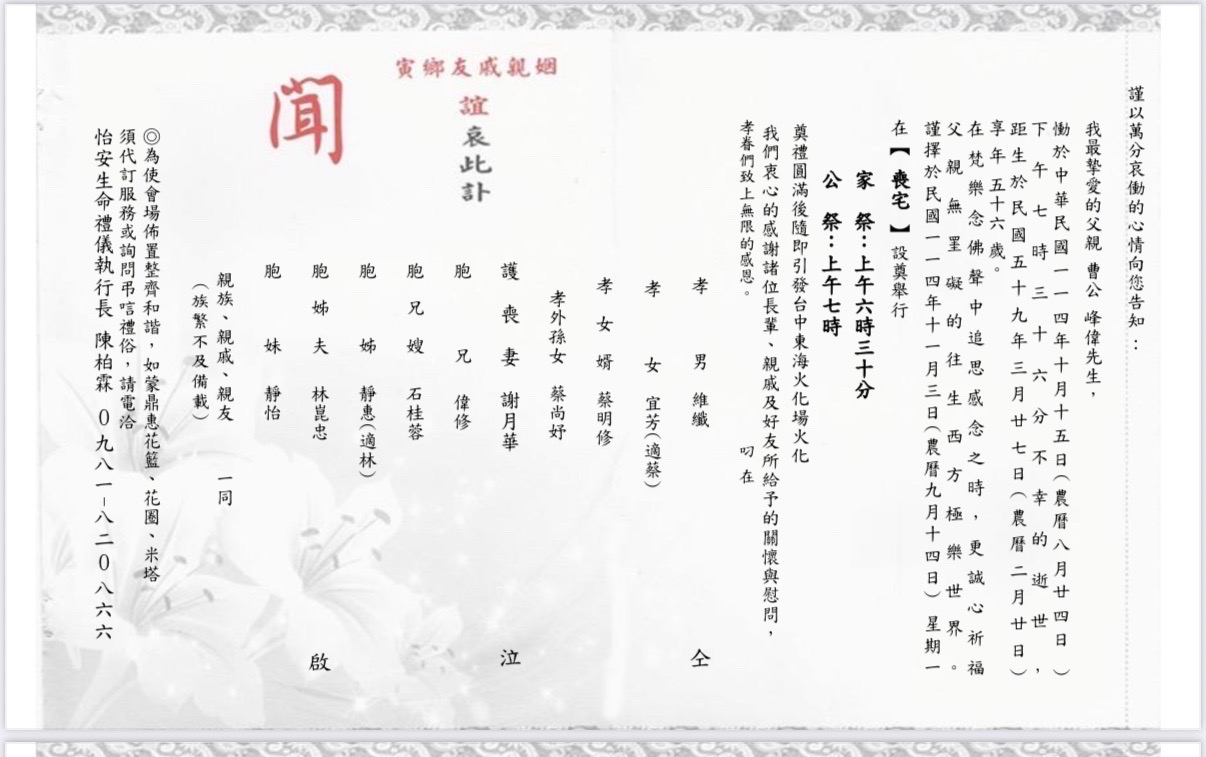 謹以萬分哀働的心情向您告知：
我最摯愛的父親 曹公 峰偉先生，
慟於中華民國一一四年十月十五日(農曆八月廿四日)
下午七時三十六分不幸的逝世，
距生於民國五十九年三月廿七日(農曆二月廿日)
享年五十六歲。
在梵樂念佛聲中追思感念之時，更誠心祈福
父親無罣礙的往生西方極樂世界。
謹擇於民國一一四年十一月三日(農曆九月十四日)星期一
在【喪宅】設奠舉行
家 祭：上午六時三十分
公 祭：上午七時
奠禮圓滿後隨即引發台中東海火化場火化
我們衷心的感謝諸位長輩、親戚及好友所給予的關懷與慰問，
孝眷們致上無限的感恩。 叨在
姻親戚友鄉寅
誼哀此訃
聞
孝男 維纖
孝女 宜芳(適蔡)
孝女婿 蔡明修
孝外孫女 蔡尚妤
護喪妻 謝月華
胞兄 偉修
胞兄嫂 石桂蓉
胞姊 靜惠(適林)
胞姊夫 林崑忠
胞妹 靜怡
仝 泣 啟
親族、親戚、親友 一同
(族繁不及備載)
◎為使會場佈置整齊和諧，如蒙鼎惠花籃、花圈、米塔
須代訂服務或詢問弔唁禮俗，請電洽
怡安生命禮儀執行長 陳柏霖 0九八一-八二0八六六